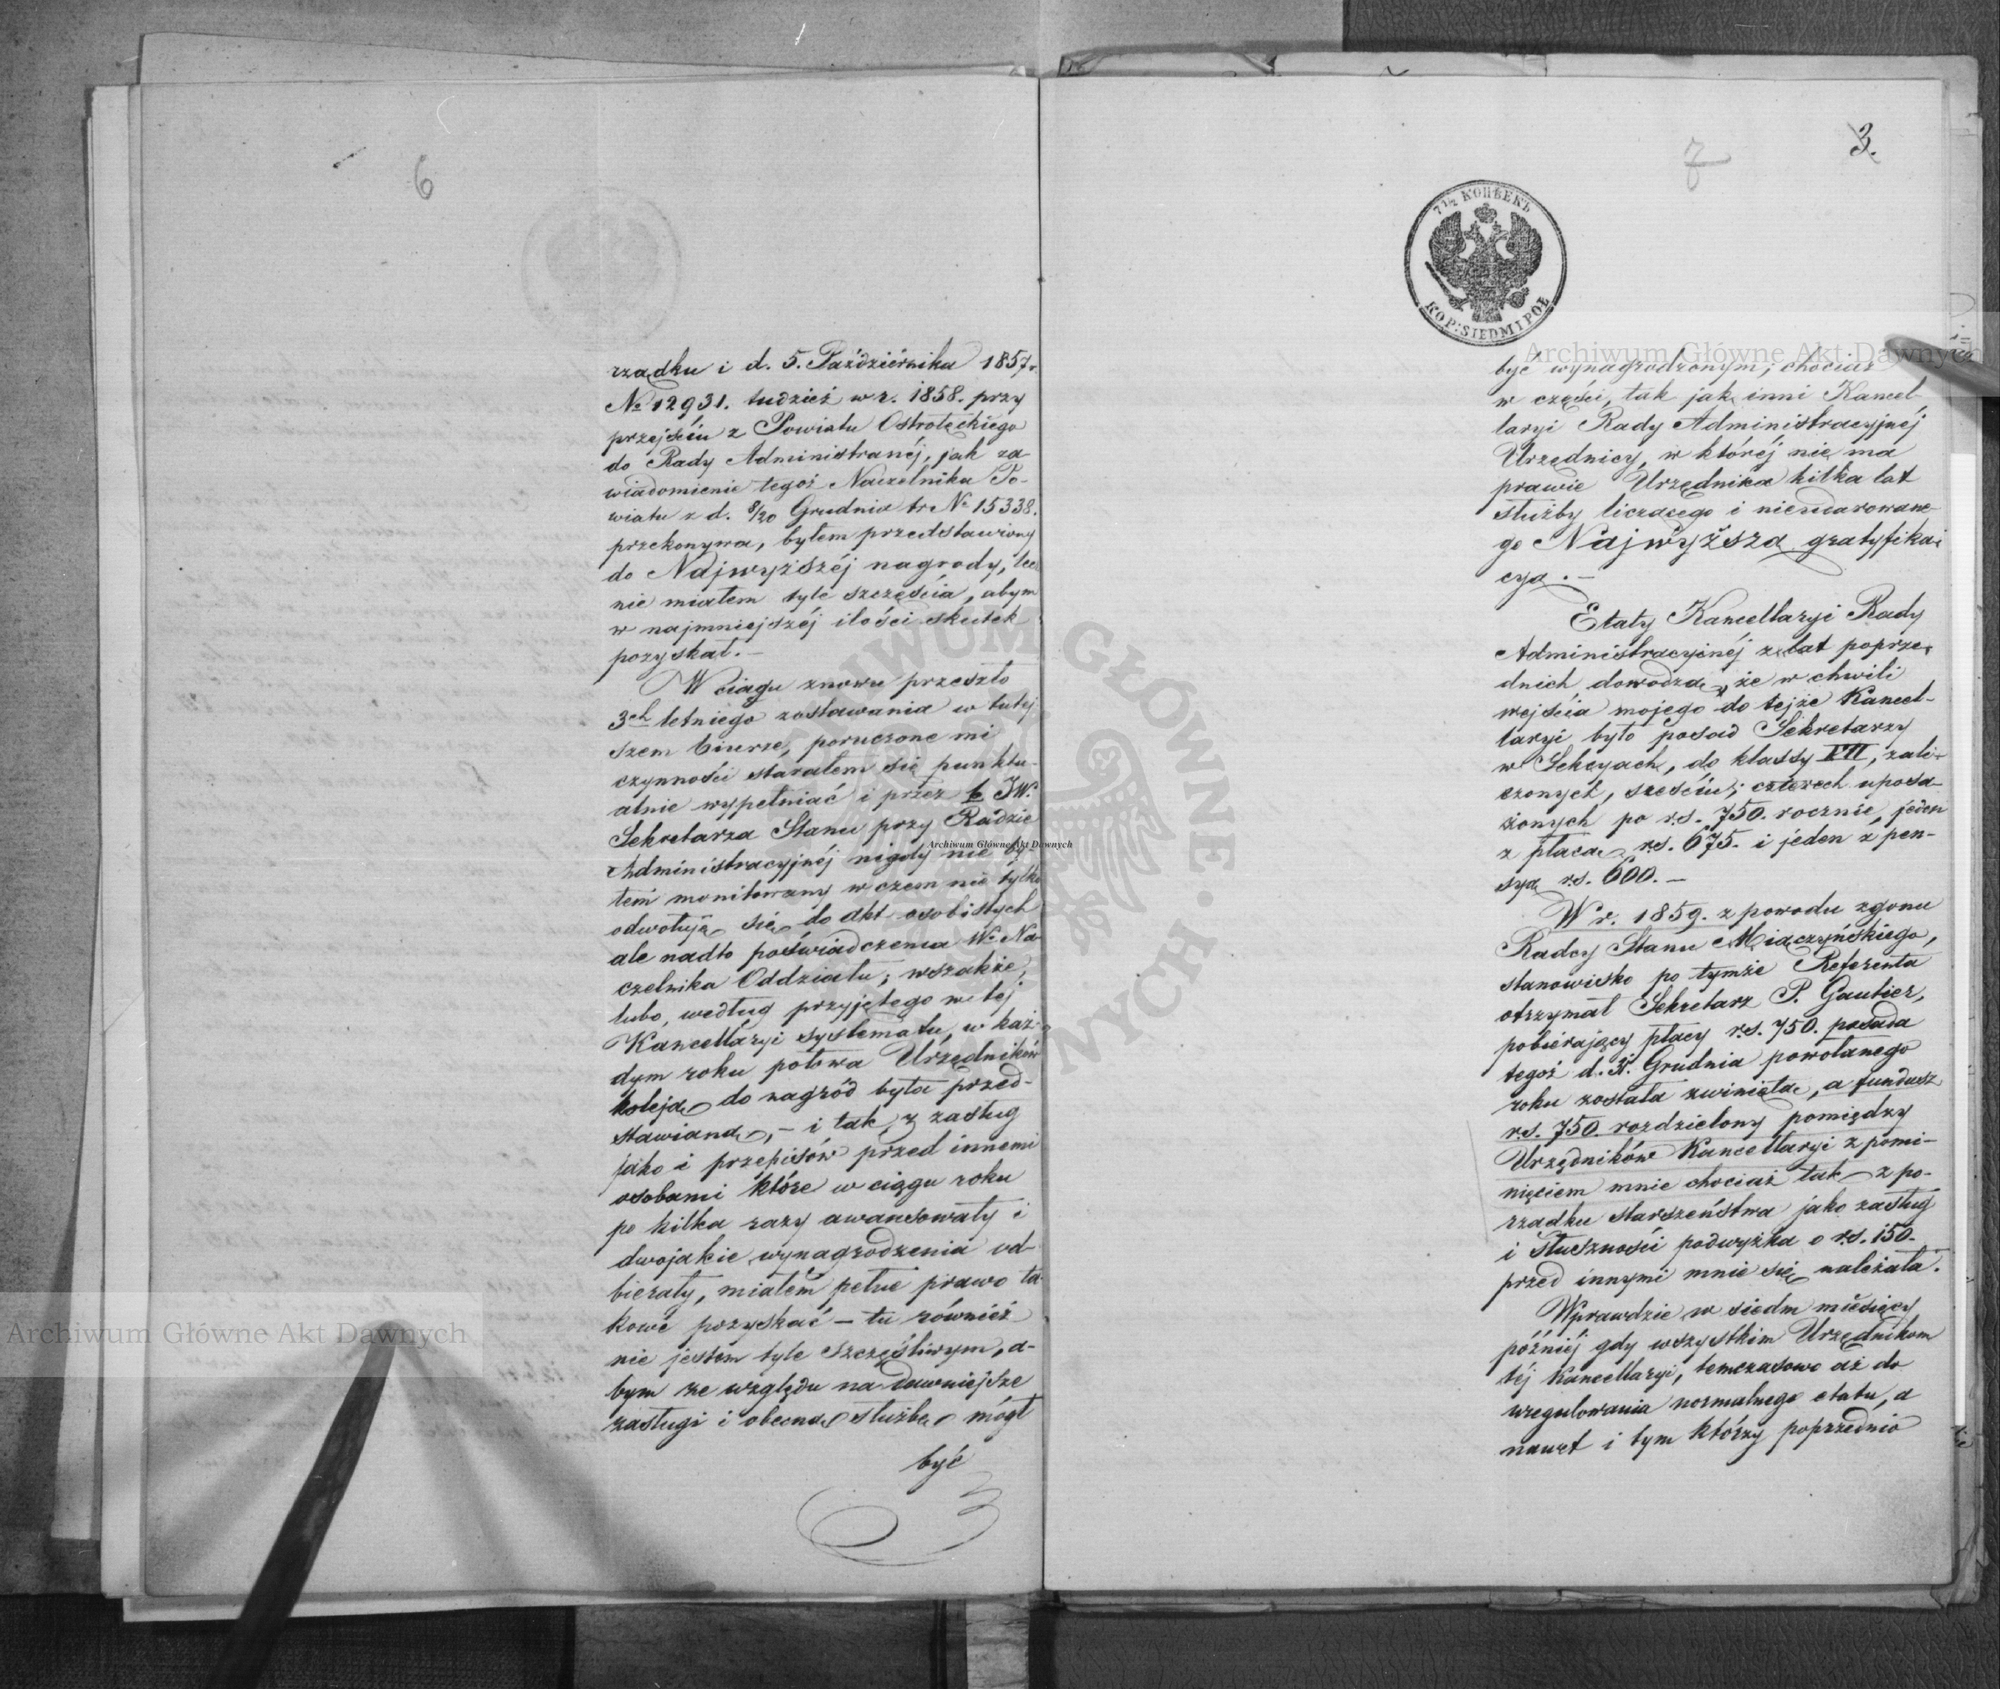 6
rządku i d. 5. Paździérnika 1857 r.
№ 12931. tudzież w r. 1858. przy
przejściu z Powiatu Ostrołęckiego
do Rady Administranéj, jak za-
wiadomienie tegoż Naczelnika Po-
wiatu z d. 8/20 Grudnia tr № 15338.
przekonywa, byłem przedstawiony
do Najwyższéj nagrody, lec
nie miałem tyle szczęścia, abym
w najmniejszéj ilości skutek
pozyskał. —
W ciągu znowu przeszło
3ch letniego zostawania w tutej
szem biurze, poruczone mi
czynności starałem się punktu-
alnie wypełniać i przez JW.
Sekretarza Stanu przy Radzie
Administracyjnéj nigdy nie by-
łem monitowany w czem nie tylko
odwołuję się do akt osobistych
ale nadto poświadczenia W. Na-
czelnika Oddziału; wszakże,
lubo, według przyjętego w téj
Kancellaryi systematu, w każ-
dym roku połowa Urzędników
koleją do nagród była przed-
stawianą, — i tak z zasług
jako i przepisów przed innemi
osobami które w ciągu roku
po kilka razy awansowały i
dwojakie wynagrodzenia od-
bierały, miałem pełne prawo ta-
kowe pozyskać — tu również
nie jestem tyle szczęśliwym, a-
bym ze względu na dawniejsze
zasługi i obecną służbę mógł
być
7
3.
7 1/2 КОПѢЕКЪ
KOP: SIEDM I PÓŁ
być wynagrodzonym, chociaż
w części, tak jak inni Kancel-
laryi Rady Administracyjnéj
Urzędnicy, w któréj nie ma
prawie Urzędnika kilka lat
służby liczącego i nieudarowane-
go Najwyższą gratyfika-
cyą. —
Etaty Kancellaryi Rady
Administracyjnéj z lat poprze-
dnich dowodzą, że w chwili
wejścia mojego do tejże Kancel-
laryi było posad Sekretarzy
w Sekcyach, do klassy VII, zali-
czonych, sześciu; czterech uposa-
żonych po r.s. 750. rocznie, jeden
z płacą r.s. 675. i jeden z pen-
syą r.s. 600. —
W r. 1859. z powodu zgonu
Radcy Stanu Miączyńskiego,
stanowisko po tymże Referenta
otrzymał Sekretarz P. Gautier,
pobierający płacy r.s. 750. posada
tegoż d. Grudnia powołanego
roku została zwiniętą, a fundusz
r.s. 750. rozdzielony pomiędzy
Urzędników Kancellaryi z pomi-
nięciem mnie chociaż tak z po-
rządku starszeństwa jako zasług
i słuszności podwyżka o r.s. 150.
przed innymi mnie się należała.
Wprawdzie w siedm miesięcy
późniéj gdy wszystkim Urzędnikom
téj Kancellaryi, temczasowo aż do
uregulowania normalnego etatu, a
nawet i tym którzy poprzednio
Archiwum Główne Akt Dawnych
Archiwum Główne Akt Dawnych
Archiwum Główne Akt Dawnych